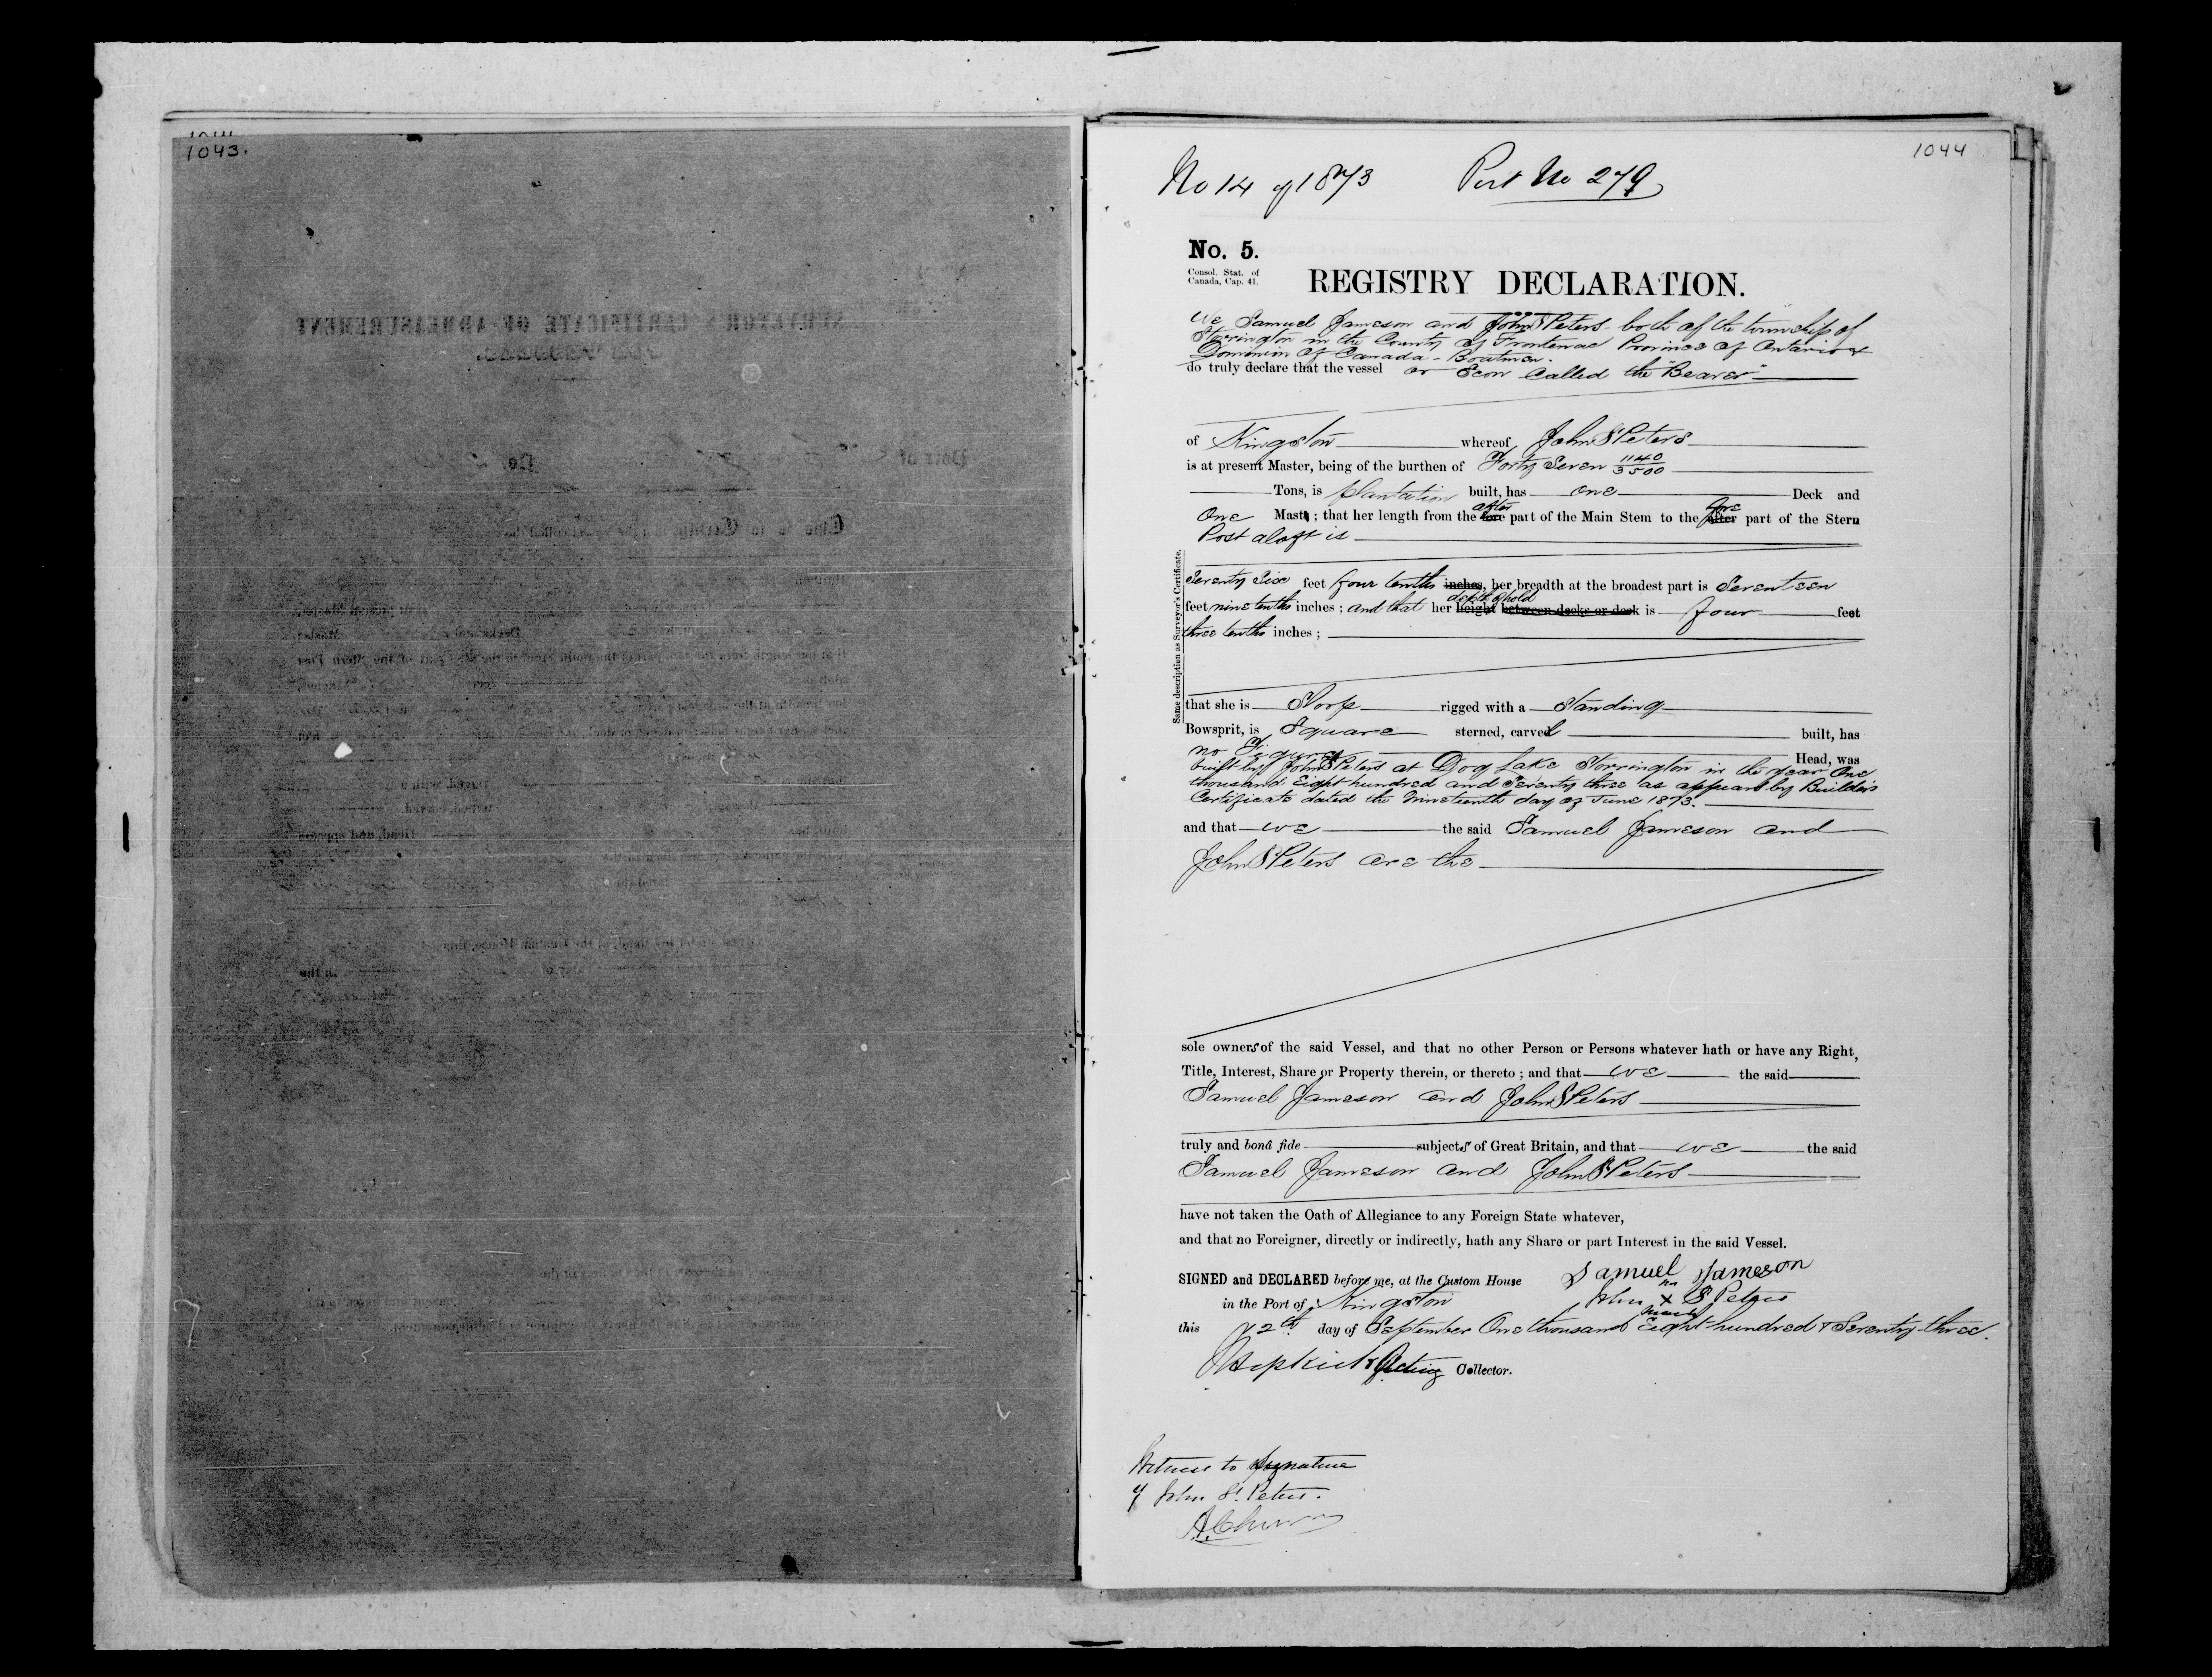 1043.
1044
No 14 of 1873 Port No 279
No. 5.
Consol. Stat. of
Canada, Cap. 41.
REGISTRY DECLARATION.
We Samuel Jameson and John St Peters both of the township of
Storrington in the County of Frontenac Province of Ontario &
Dominion of Canada - Boatmen.
do truly declare that the vessel or Scow Called the "Beaver"
of Kingston whereof John St Peters
is at present Master, being of the burthen of Forty Seven 1140/3500
Tons, is plantation built, has one Deck and
One Mast ; that her length from the after fore part of the Main Stem to the fore after part of the Stern
Post aloft is
Same description as Surveyor's Certificate.
Seventy Six feet four tenths inches, her breadth at the broadest part is Seventeen
feet nine tenths inches ; and that her depth of hold height between decks or deck is four feet
three tenths inches ;
that she is Sloop rigged with a Standing
Bowsprit, is Square sterned, carvel built, has
no Figure Head, was
built by John St Peters at Dog Lake Storrington in the year One
thousand Eight hundred and Seventy three as appears by Builders
Certificate dated the Nineteenth day of June 1873.
and that we the said Samuel Jameson and
John St Peters are the
sole owners of the said Vessel, and that no other Person or Persons whatever hath or have any Right,
Title, Interest, Share or Property therein, or thereto ; and that we the said
Samuel Jameson and John St Peters
truly and bonâ fide subjects of Great Britain, and that we the said
Samuel Jameson and John St Peters
have not taken the Oath of Allegiance to any Foreign State whatever,
and that no Foreigner, directly or indirectly, hath any Share or part Interest in the said Vessel.
SIGNED and DECLARED before me, at the Custom House Samuel Jameson
his
in the Port of Kingston John X St Peters
mark
this 12th day of September One thousand Eight hundred & Seventy three.
Acting Collector.
Witness to Signature
of John St. Peters.